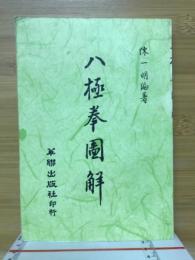 陳一明編著
八極拳圖解
華聯出版社印行